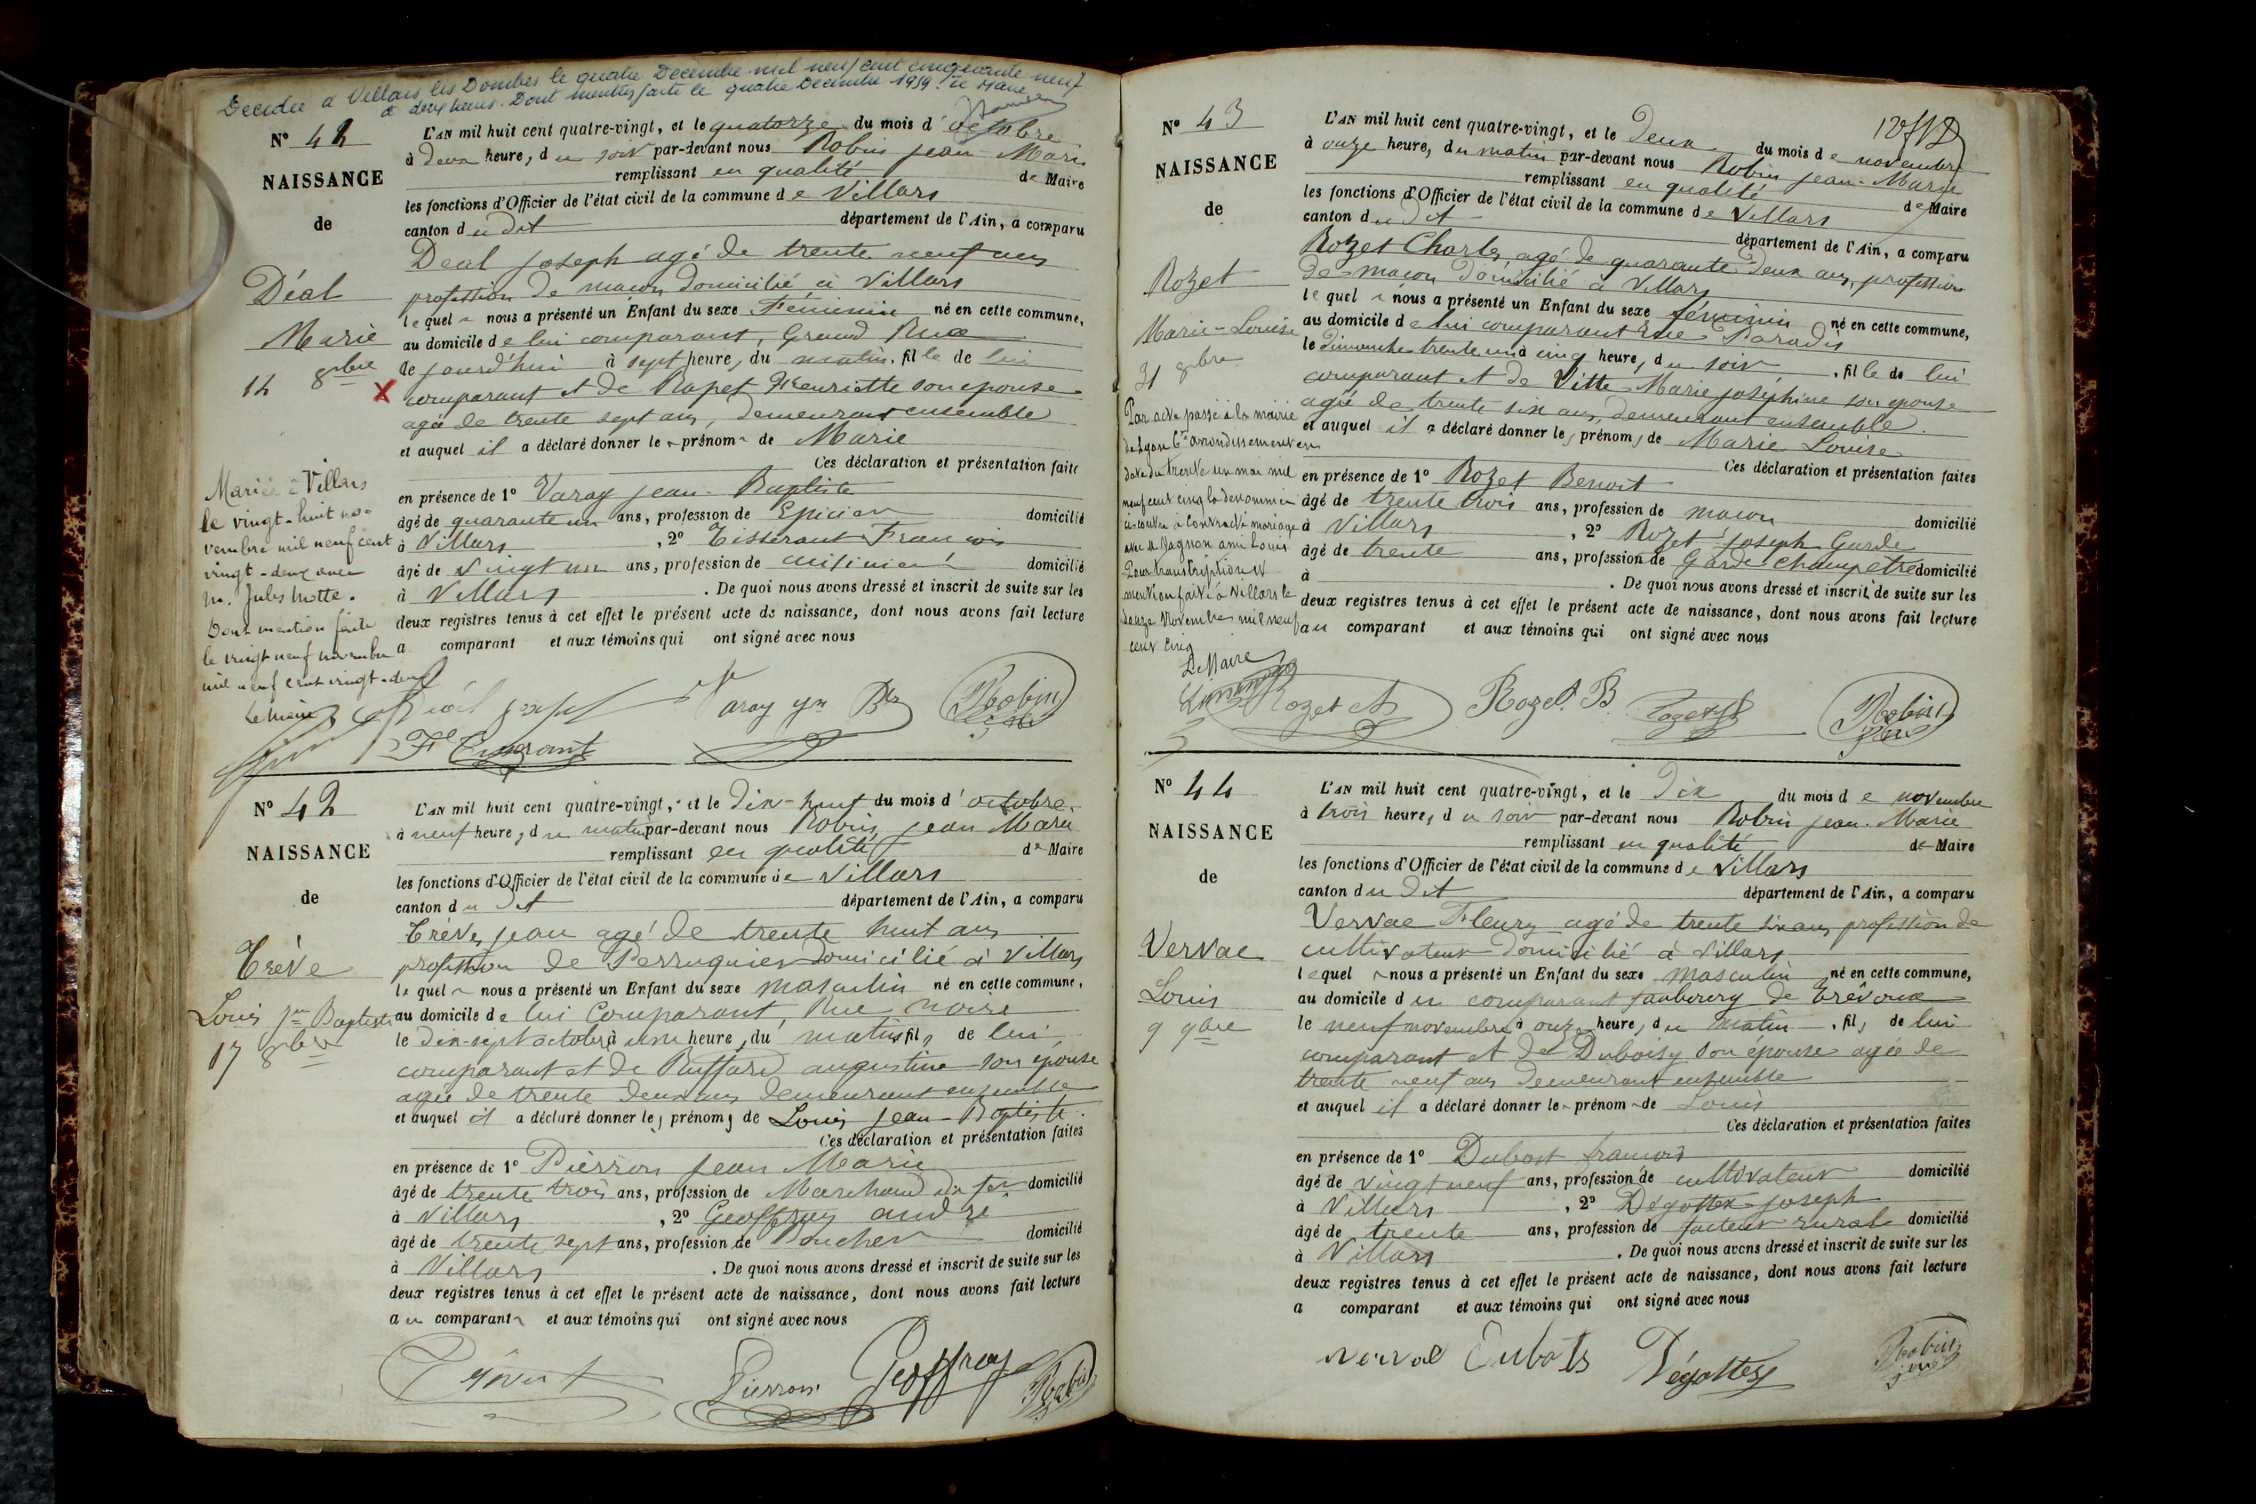 Décédée à Villars les Dombes le quatre Décembre mil neuf cent cinquante neuf
à deux heures. Dont mention faite le quatre Décembre 1959. Le Maire
N° 42
NAISSANCE
de
Déal
Marie
14 8bre
Mariée à Villars
le vingt-huit no-
vembre mil neuf cent
vingt-deux avec
M. Jules Motte.
Dont mention faite
le vingt neuf novembre
mil neuf cent vingt-deux
Le maire
L'AN mil huit cent quatre-vingt, et le quatorze du mois d'octobre
à deux heure, du soir par-devant nous Robin jean-Marie
remplissant en qualité de Maire
les fonctions d'Officier de l'état civil de la commune de Villars
canton du dit département de l'Ain, a comparu
Deal joseph agé de trente neuf ans
profession de maçon domicilié à Villars
lequel nous a présenté un Enfant du sexe Féminin né en cette commune,
au domicile de lui comparant, Grand Rue
le jourd'hui à sept heure, du matin. fille de lui
X comparant et de Rapet Henriette son epouse
agée de trente sept ans, demeurant ensemble
et auquel il a déclaré donner le prénom de Marie
Ces déclaration et présentation faite
en présence de 1° Varay jean-Baptiste
âgé de quarante un ans, profession de Epicier domicilié
à Villars , 2° Tisserant François
âgé de vingt un ans, profession de domicilié
à Villars . De quoi nous avons dressé et inscrit de suite sur les
deux registres tenus à cet effet le présent acte de naissance, dont nous avons fait lecture
a comparant et aux témoins qui ont signé avec nous
Déal joseph Varay jn Bte Robin
N° 42
NAISSANCE
de
Trève
Louis jn Baptiste
17 8bre
L'AN mil huit cent quatre-vingt, et le dix-huit du mois d'octobre.
à neuf heure, du matin par-devant nous Robin jean Marie
remplissant en qualité de Maire
les fonctions d'Officier de l'état civil de la commune de Villars
canton du dit département de l'Ain, a comparu
Trève, jean agé de trente huit ans
profession de Perruquier domicilié à Villars
lequel nous a présenté un Enfant du sexe masculin né en cette commune,
au domicile de lui Comparant, Rue noire
le dix-sept octobre à une heure, du matin fils de lui
comparant et de Ruffard augustine son épouse
agée de trente deux ans demeurant ensemble
et auquel il a déclaré donner les prénoms de Louis jean-Baptiste.
Ces déclaration et présentation faites
en présence de 1° Pierron jean Marie
âgé de trente trois ans, profession de Marchand de fer domicilié
à Villars , 2° Geoffray andré
âgé de trente sept ans, profession de Boucher domicilié
à Villars . De quoi nous avons dressé et inscrit de suite sur les
deux registres tenus à cet effet le présent acte de naissance, dont nous avons fait lecture
au comparant et aux témoins qui ont signé avec nous
Pierron Geoffray Robin
N° 43
NAISSANCE
de
Rozet
Marie-Louise
31 8bre
Par acte passé à la mairie
de Lyon 6e arrondissement en
date du trente un mai mil
neuf cent cinq la dénommée
ci-contre à contracté mariage
avec M Gagnon ami Louis
Pour transcription et
mention faite à Villars le
douze Novembre mil neuf
cent cinq
Le Maire
L'AN mil huit cent quatre-vingt, et le Deux du mois de novembre
à onze heure, du matin par-devant nous Robin jean-Marie
remplissant en qualité de Maire
les fonctions d'Officier de l'état civil de la commune de Villars
canton du dit département de l'Ain, a comparu
Rozet Charles, agé de quarante-deux ans, profession
de maçon domicilié à Villars
lequel nous a présenté un Enfant du sexe féminin né en cette commune,
au domicile de lui comparant Rue Paradis
le dimanche trente un à cinq heure, du soir , fille de lui
comparant et de Vitte Marie joséphine son epouse
agée de trente six ans, demeurant ensemble.
et auquel il a déclaré donner les prénoms de Marie Louise
Ces déclaration et présentation faites
en présence de 1° Rozet Benoit
âgé de trente trois ans, profession de maçon domicilié
à Villars , 2° Rozet joseph Garde
âgé de trente ans, profession de Garde-champêtre domicilié
à . De quoi nous avons dressé et inscrit de suite sur les
deux registres tenus à cet effet le présent acte de naissance, dont nous avons fait lecture
au comparant et aux témoins qui ont signé avec nous
Rozet ch Rozet B Rozet Robin
N° 44
NAISSANCE
de
Vervae
Louis
9 9bre
L'AN mil huit cent quatre-vingt, et le Dix du mois de novembre
à trois heure, du soir par-devant nous Robin jean-Marie
remplissant en qualité de Maire
les fonctions d'Officier de l'état civil de la commune de Villars
canton du dit département de l'Ain, a comparu
Vervae Fleury agé de trente six ans profession de
cultivateur domicilié à Villars
lequel nous a présenté un Enfant du sexe masculin né en cette commune,
au domicile du comparant faubourg de Trévoux
le neuf novembre à onze heure, du matin . fils de lui
comparant et de Duboisy son épouse agée de
trente neuf ans demeurant ensemble
et auquel il a déclaré donner le prénom de Louis
Ces déclaration et présentation faites
en présence de 1° Dubost françois
âgé de vingt neuf ans, profession de cultivateur domicilié
à Villars , 2° Dégottex joseph
âgé de trente ans, profession de facteur rural domicilié
à Villars . De quoi nous avons dressé et inscrit de suite sur les
deux registres tenus à cet effet le présent acte de naissance, dont nous avons fait lecture
a comparant et aux témoins qui ont signé avec nous
Dégottex Robin